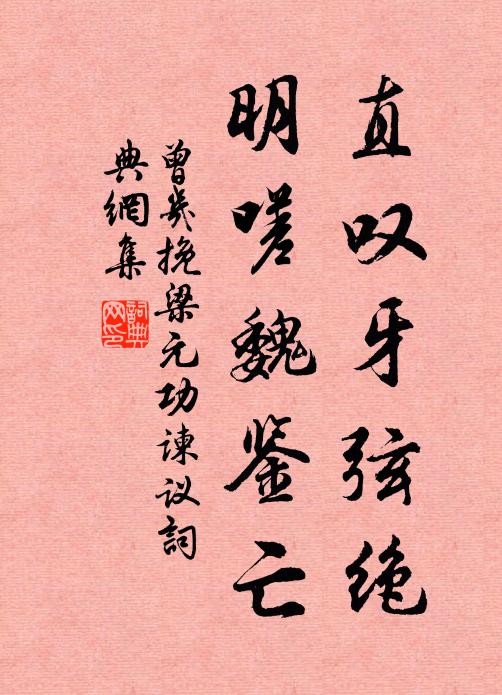 直叹牙弦绝
明嗟魏鉴亡
曾幾挽梁元功谏议詞
典網集
詞典網印